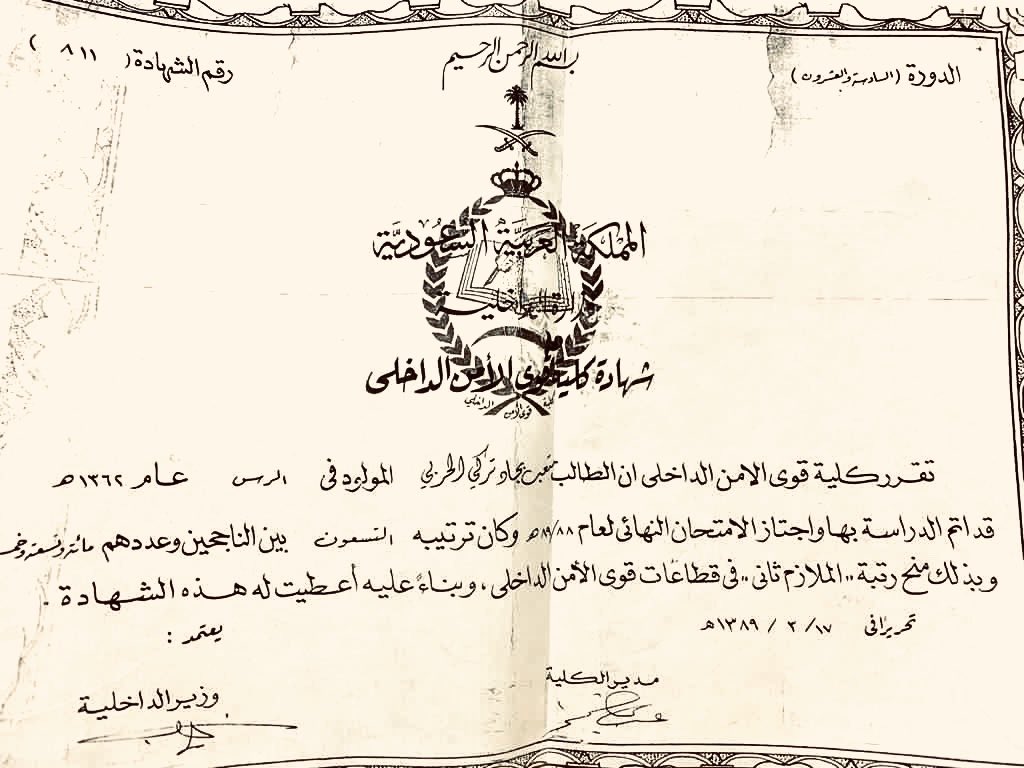 بسم الله الرحمن الرحيم
الدورة (السادسة والعشرون)
رقم الشهادة ( ٨١١ )
المملكة العربية السعودية
وزارة الداخلية
شهادة كلية قوى الأمن الداخلى
كلية قوى الأمن الداخلي
تقرر كلية قوى الامن الداخلى ان الطالب متعب بجاد تركي الحربي المولود فى الرس عام ١٣٦٢ هـ
قد اتم الدراسة بها واجتاز الامتحان النهائى لعام ٨٩/٨٨ هـ وكان ترتيبه التسعون بين الناجحين وعددهم مائة وتسعة
وبذلك منح رتبة ,, الملازم ثانى ,, فى قطاعات قوى الأمن الداخلى ، وبناءً عليه أعطيت له هذه الشهادة .
تحريرا فى ١٧ / ٢ / ١٣٨٩ هـ
يعتمد :
مدير الكلية
وزير الداخلية